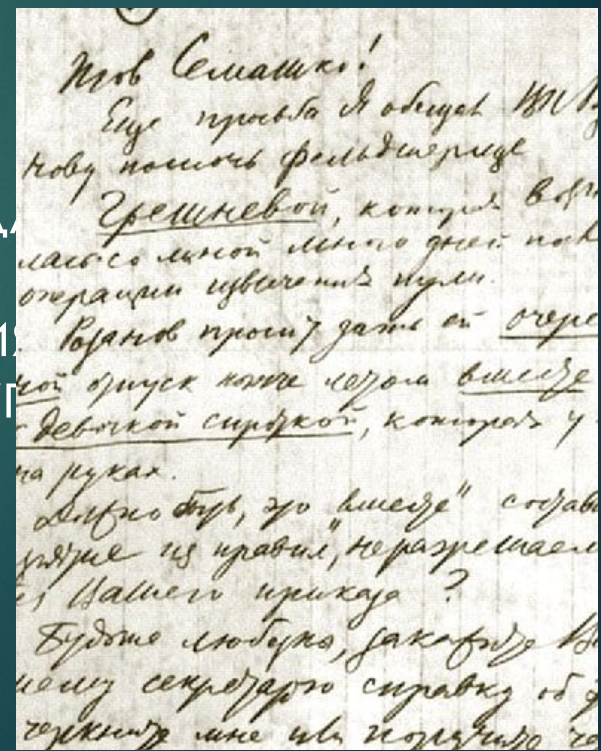 Тов Семашко!
Еще просьба Я обещал ВН Роза
нову помочь фельдшерице
Грешневой, которая возил
лась со мной много дней посл
операции извлечения пули.
Розанов просит дать ей очере
ной отпуск ныне летом вместе
с девочкой сироткой, которая у
на руках.
Должно быть, это "вместе" составл
ятие из правил, неразрешаем
ез Вашего приказа?
Будьте любезны, закажите В
шему секретарю справку об э
черкните мне или поручите